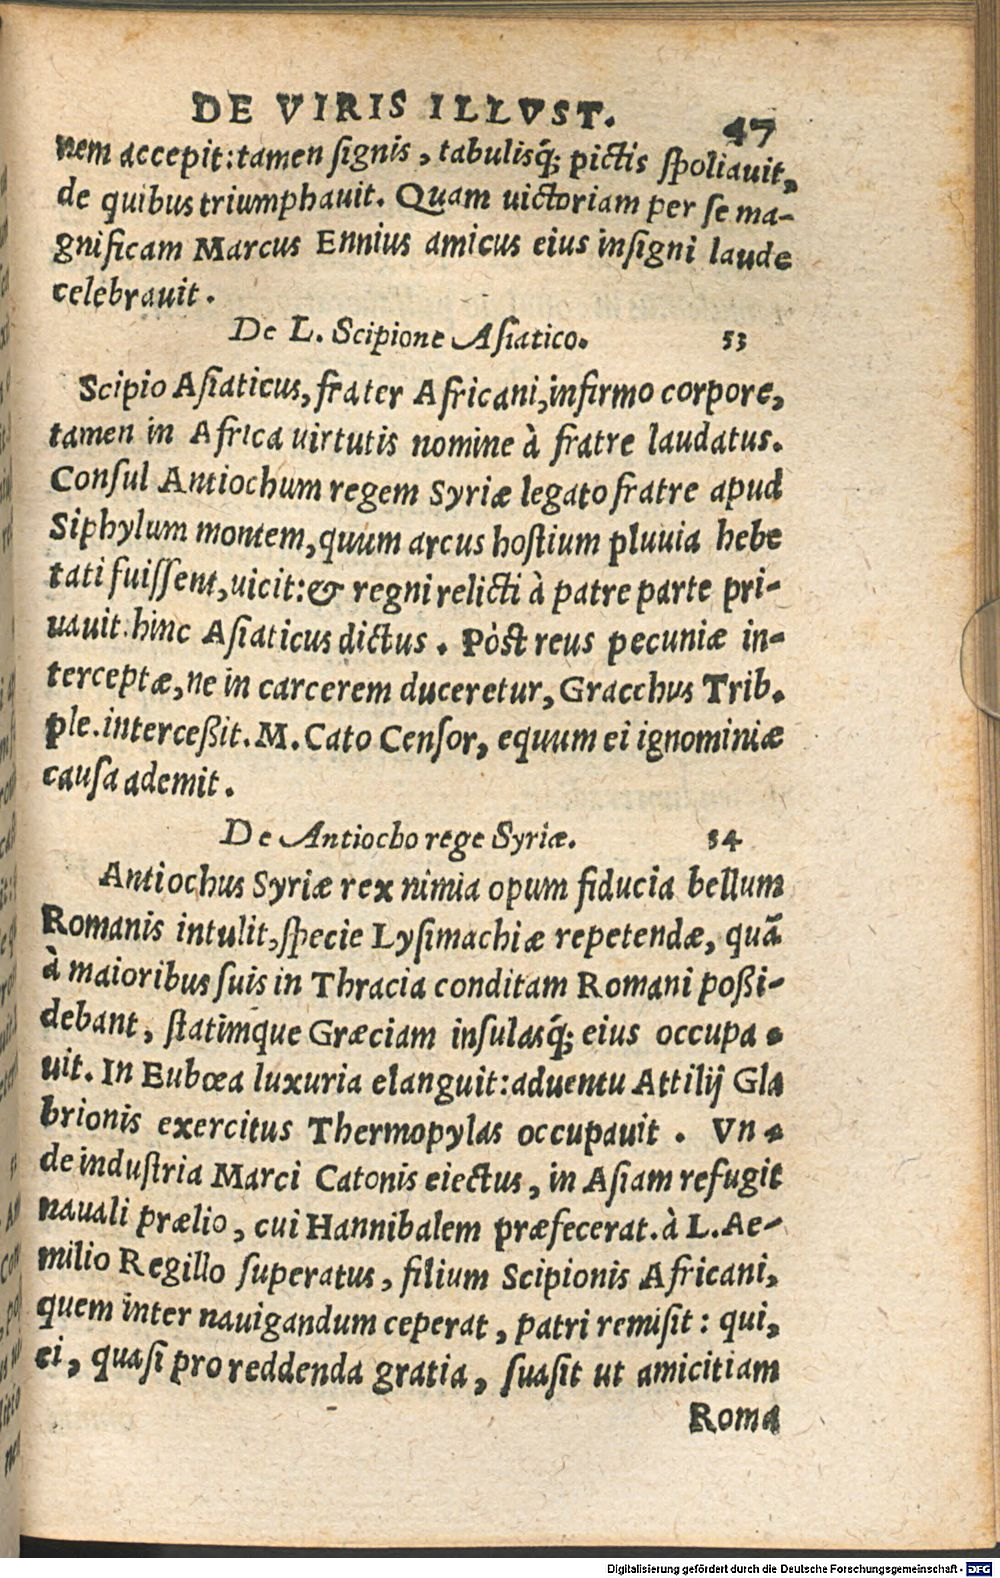 DE VIRIS ILLVST. 47
nem accepit: tamen ſignis, tabulisq́; pictis ſpoliauit,
de quibus triumphauit. Quam uictoriam per ſe ma-
gnificam Marcus Ennius amicus eius inſigni laude
celebrauit.
De L. Scipione Aſiatico. 53
Scipio Aſiaticus, frater Africani, infirmo corpore,
tamen in Africa uirtutis nomine à fratre laudatus.
Conſul Antiochum regem Syriæ legato fratre apud
Siphylum montem, quum arcus hoſtium pluuia hebe
tati fuiſſent, uicit: & regni relicti à patre parte pri-
uauit. hinc Aſiaticus dictus. Pòſt reus pecuniæ in-
terceptæ, ne in carcerem duceretur, Gracchus Trib.
ple. interceßit. M. Cato Cenſor, equum ei ignominiæ
cauſa ademit.
De Antiocho rege Syriæ. 54
Antiochus Syriæ rex nimia opum fiducia bellum
Romanis intulit, ſpecie Lyſimachiæ repetendæ, quã
à maioribus ſuis in Thracia conditam Romani poßi-
debant, ſtatimque Græciam inſulasq́; eius occupa-
uit. In Eubœa luxuria elanguit: aduentu Attilij Gla
brionis exercitus Thermopylas occupauit. Vn-
de induſtria Marci Catonis eiectus, in Aſiam refugit
nauali prælio, cui Hannibalem præfecerat. à L. Ae-
milio Regillo ſuperatus, filium Scipionis Africani,
quem inter nauigandum ceperat, patri remiſit: qui,
ei, quaſi pro reddenda gratia, ſuaſit ut amicitiam
Roma
Digitalisierung gefördert durch die Deutsche Forschungsgemeinschaft - DFG